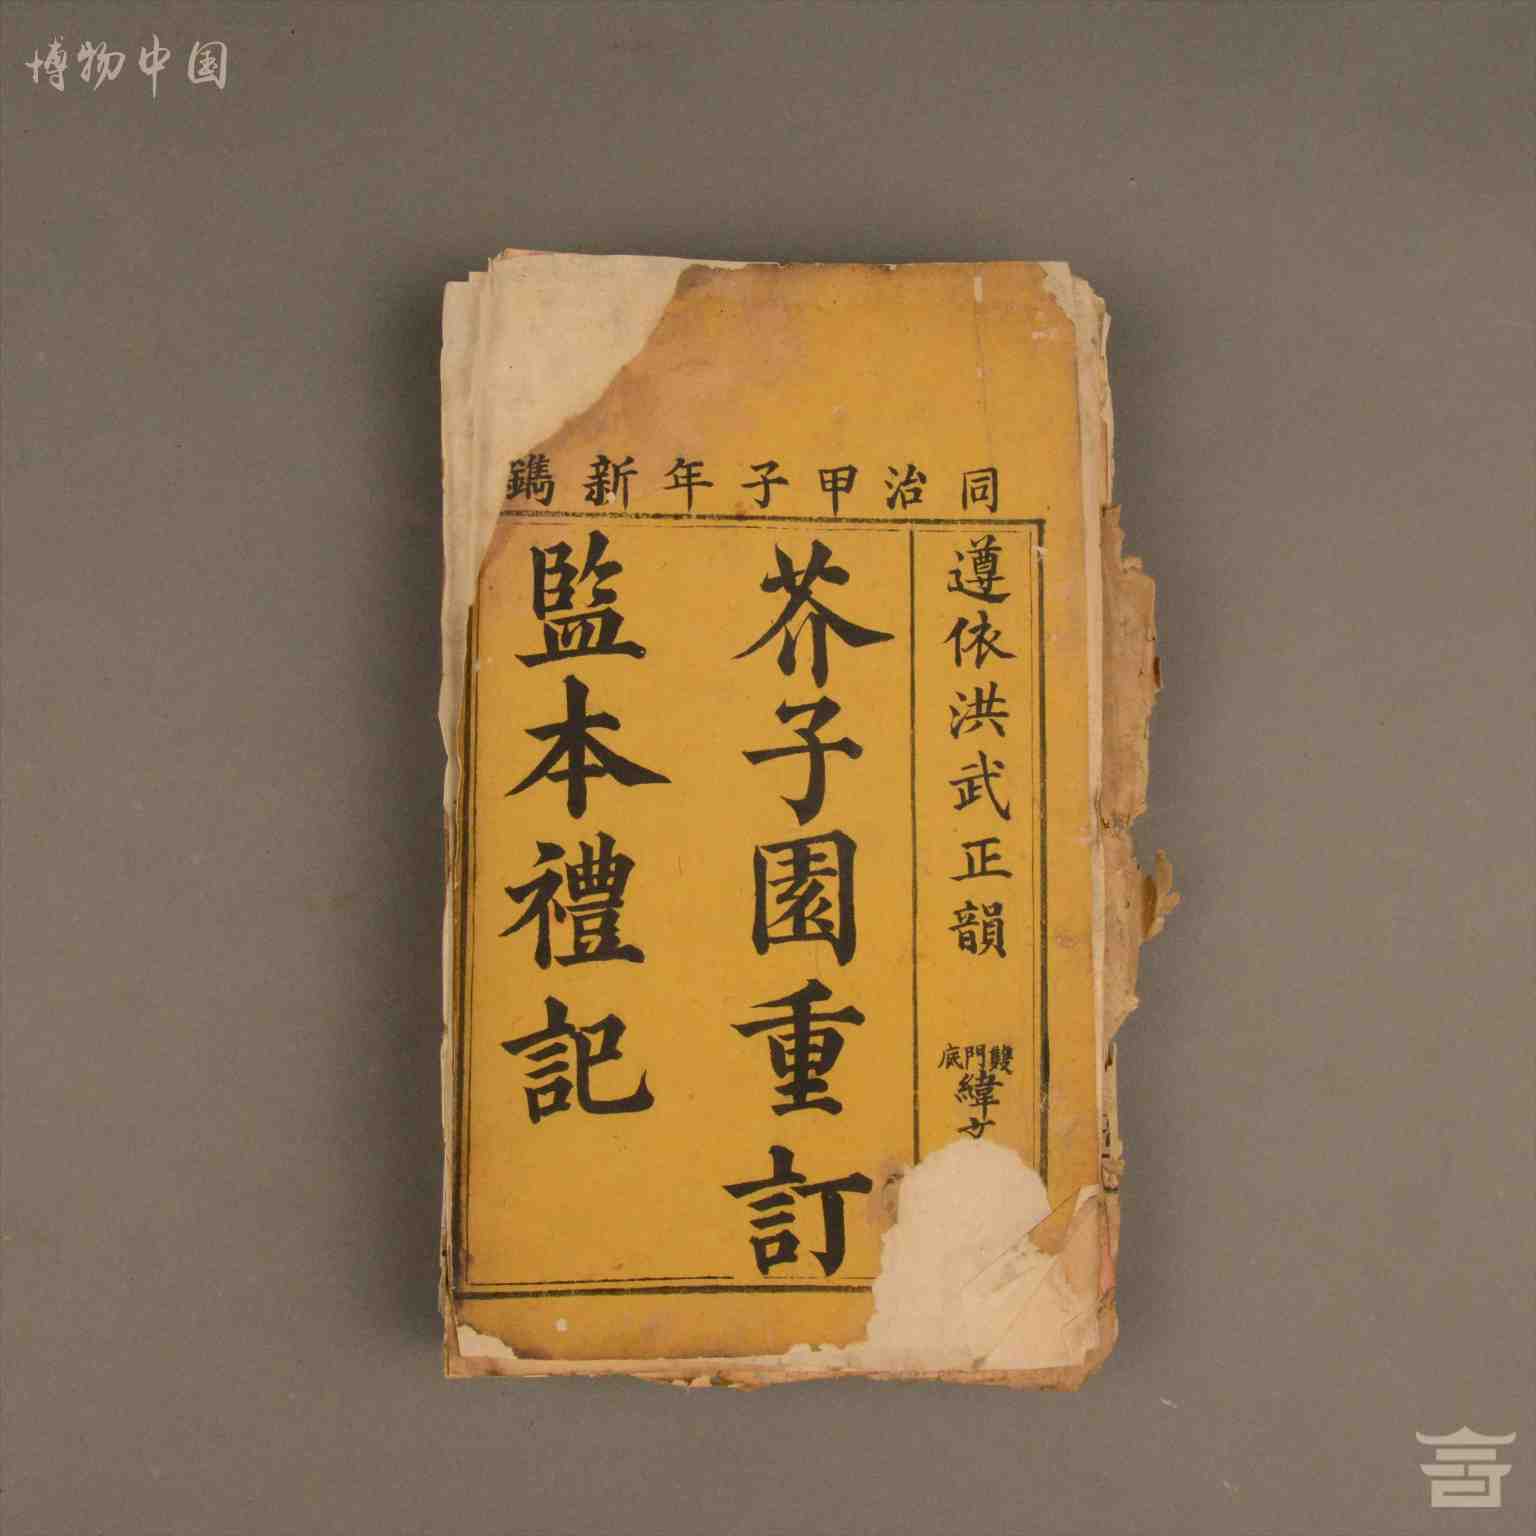 博物中国
同治甲子年新鐫
遵依洪武正韻
雙門底
緯文
芥子園重訂
監本禮記